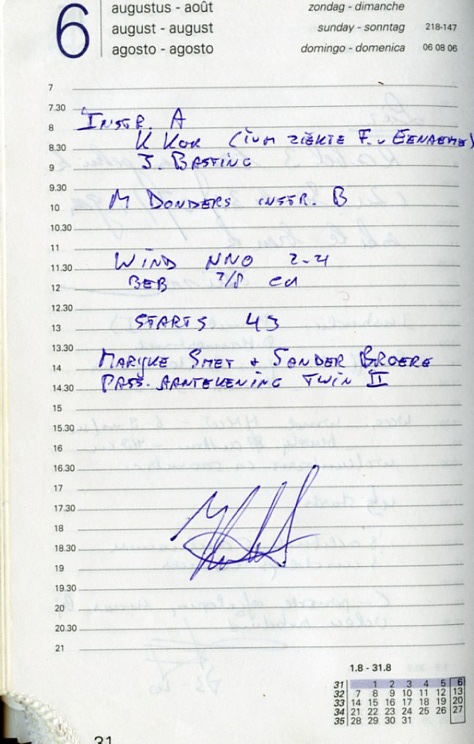 6
augustus - août
august - august
agosto - agosto
zondag - dimanche
sunday - sonntag
domingo - domenica
218-147
06 08 06
7
7.30
INSTR. A
8
K KOK (IVM ZIEKTE F. v EENAEME)
8.30
J. BASTING
9
9.30
M DONDERS INSTR. B
10
10.30
11
WIND NNO 2-4
11.30
BEB 7/8 cu
12
12.30
STARTS 43
13
13.30
MARYKE SMET + SANDER BROERE
14
PASS. AANTEKENING TWIN II
14.30
15
15.30
16
16.30
17
17.30
18
18.30
19
19.30
20
20.30
21
1.8 - 31.8
31 1 2 3 4 5 6
32 7 8 9 10 11 12 13
33 14 15 16 17 18 19 20
34 21 22 23 24 25 26 27
35 28 29 30 31
31